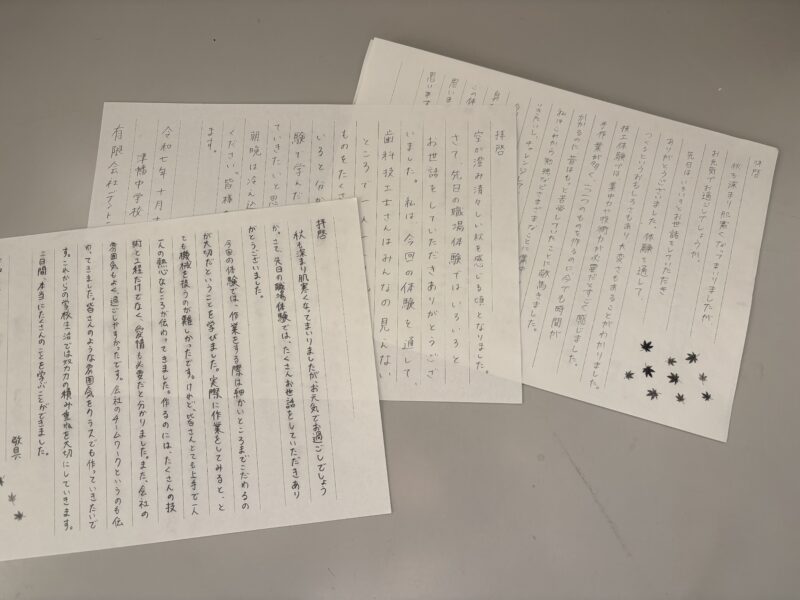 拝啓
秋も深まり肌寒くなってまいりましたが、お元気でお過ごしでしょう
か。さて、先日の職場体験では、たくさんお世話をしていただきあり
がとうございました。
今回の体験では、作業をする際は細かいところまでこだわるの
が大切だということを学びました。実際に作業をしてみると、と
ても機械を扱うのが難しかったです。けれど、皆さんとても上手で一人
一人の熱心なところが伝わってきました。作るのには、たくさんの技
術と工程だけでなく、愛情も必要だと分かりました。また、会社の
雰囲気もよく過ごしやすかったです。会社のチームワークというのも伝
わってきました。皆さんのような雰囲気をクラスでも作っていきたいで
す。これからの学校生活では努力の積み重ねを大切にしていきます。
二日間、本当にたくさんのことを学ぶことができました。
敬具
拝啓
空が澄み清々しい秋を感じる頃となりました。
さて、先日の職場体験ではいろいろと
お世話をしていただきありがとうござ
いました。私は今回の体験を通して、
歯科技工士さんはみんなの見えない
ところで
ものをたくさ
いると分か
験で学んだ
ていきたいと思
朝晩は冷え込
ください。皆様の
ます。
令和七年十月十
津幡中学校
有限会社デント
拝啓
秋も深まり肌寒くなってまいりましたが、
お元気でお過ごしでしょうか。
先日はいろいろとお世話をしていただき
ありがとうございました。体験を通して、
つくるというおもしろさもあり大変さもあることがわかりました。
技工体験では、集中力や技術力が必要だとすごく感じました。
手作業が多く、一つのものを作るのに今でも時間が
かかるのに昔はもっと苦労していたことに驚きました。
私はこれから勉強などさまざまなことに集中
チャレンジして
思います